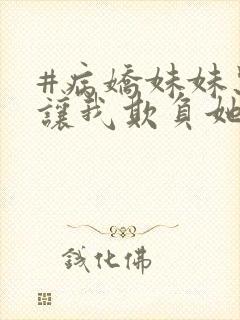 #病嬌妹妹
讓我欺負她
鋨化佛